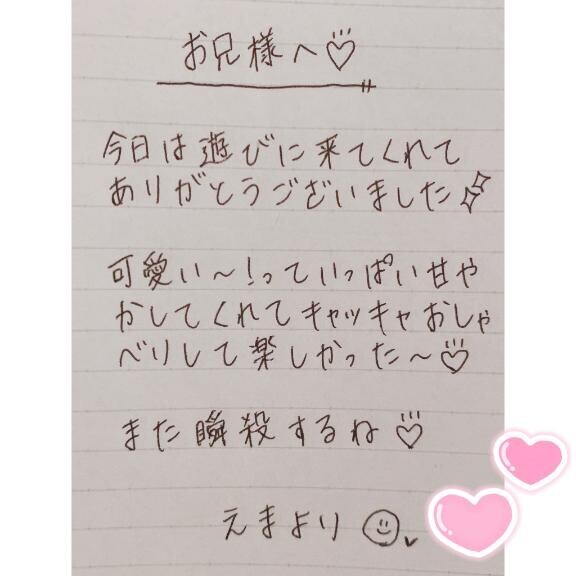 お兄様へ♡
今日は遊びに来てくれて
ありがとうございました✨
可愛い〜!っていっぱい甘や
かしてくれてキャッキャおしゃ
べりして楽しかった〜♡
また瞬殺するね♡
えまより